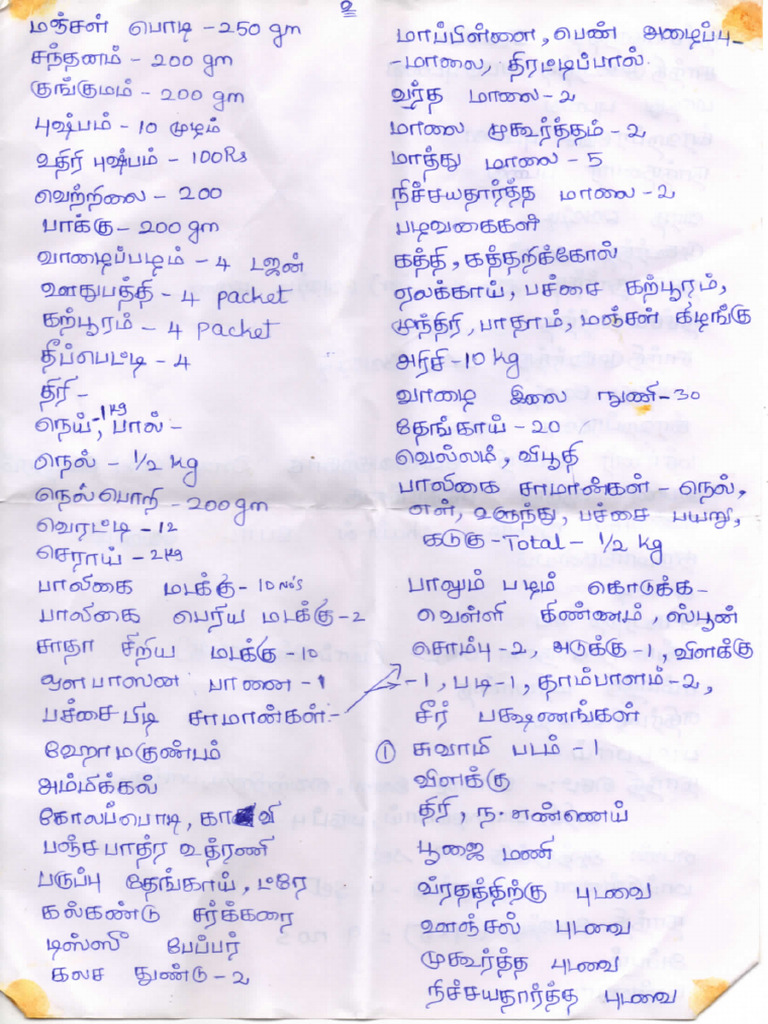 2
மஞ்சள் பொடி - 250 gm
சந்தனம் - 200 gm
குங்குமம் - 200 gm
புஷ்பம் - 10 முழம்
உதிரி புஷ்பம் - 100Rs
வெற்றிலை - 200
பாக்கு - 200 gm
வாழைப்பழம் - 4 டஜன்
ஊதுபத்தி - 4 packet
கற்பூரம் - 4 packet
தீப்பெட்டி - 4
திரி -
நெய் - 1kg, பால் -
நெல் - 1/2 kg
நெல்பொறி - 200 gm
வெரட்டி - 12
செராய் - 2kg
பாலிகை மடக்கு - 10 No's
பாலிகை பெரிய மடக்கு - 2
சாதா சிறிய மடக்கு - 10
ஔபாஸன பானை - 1
பச்சைபிடி சாமான்கள் -
ஹோமகுண்டம்
அம்மிக்கல்
கோலப்பொடி, காவி
பஞ்சபாத்ர உத்ரணி
பருப்பு தேங்காய், ட்ரே
கல்கண்டு சர்க்கரை
டிஸ்ஸீ பேப்பர்
கலச துண்டு - 2
மாப்பிள்ளை, பெண் அழைப்பு -
- மாலை, திரட்டிப்பால்.
வ்ரத மாலை - 2
மாலை முகூர்த்தம் - 2
மாத்து மாலை - 5
நிச்சயதார்த்த மாலை - 2
பழவகைகள்
கத்தி, கத்தறிக்கோல்
ஏலக்காய், பச்சை கற்பூரம்,
முந்திரி, பாதாம், மஞ்சள் கிழங்கு
அரிசி - 10 kg
வாழை இலை நுணி - 30
தேங்காய் - 20
வெல்லம், விபூதி
பாலிகை சாமான்கள் - நெல்,
எள், உளுந்து, பச்சை பயறு,
கடுகு - Total - 1/2 kg
பாலும் பழம் கொடுக்க -
வெள்ளி கிண்ணம், ஸ்பூன்
சொம்பு - 2, அடுக்கு - 1, விளக்கு
- 1, படி - 1, தாம்பாளம் - 2,
சீர் பக்ஷணங்கள்
① சுவாமி படம் - 1
விளக்கு
திரி, ந. எண்ணெய்
பூஜை மணி
வ்ரதத்திற்கு புடவை
ஊஞ்சல் புடவை
முகூர்த்த புடவை
நிச்சயதார்த்த புடவை